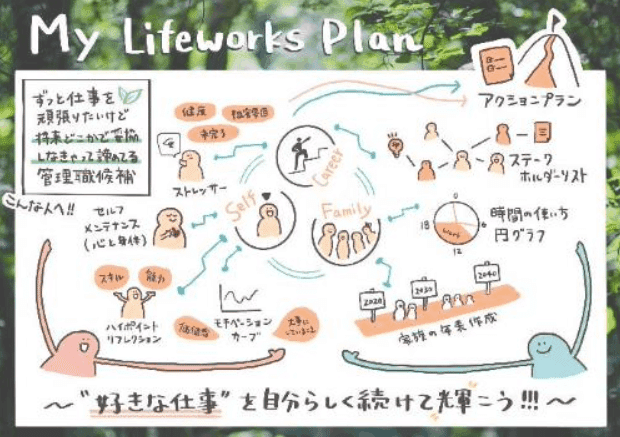 My Lifeworks Plan
ずっと仕事を
頑張りたいけど
将来どこかで妥協
しなきゃって諦めてる
管理職候補
こんな人へ!!
アクションプラン
健康
ストレッサー
Career
Self
Family
ステーク
ホルダーリスト
セルフ
メンテナンス
(心と身体)
時間の使い方
円グラフ
0
6
12
18
Work
スキル
能力
ハイポイント
リフレクション
価値観
モチベーション
カーブ
大事に
していること
2020
2030
2040
家族の年表作成
～"好きな仕事"を自分らしく続けて輝こう!!!～